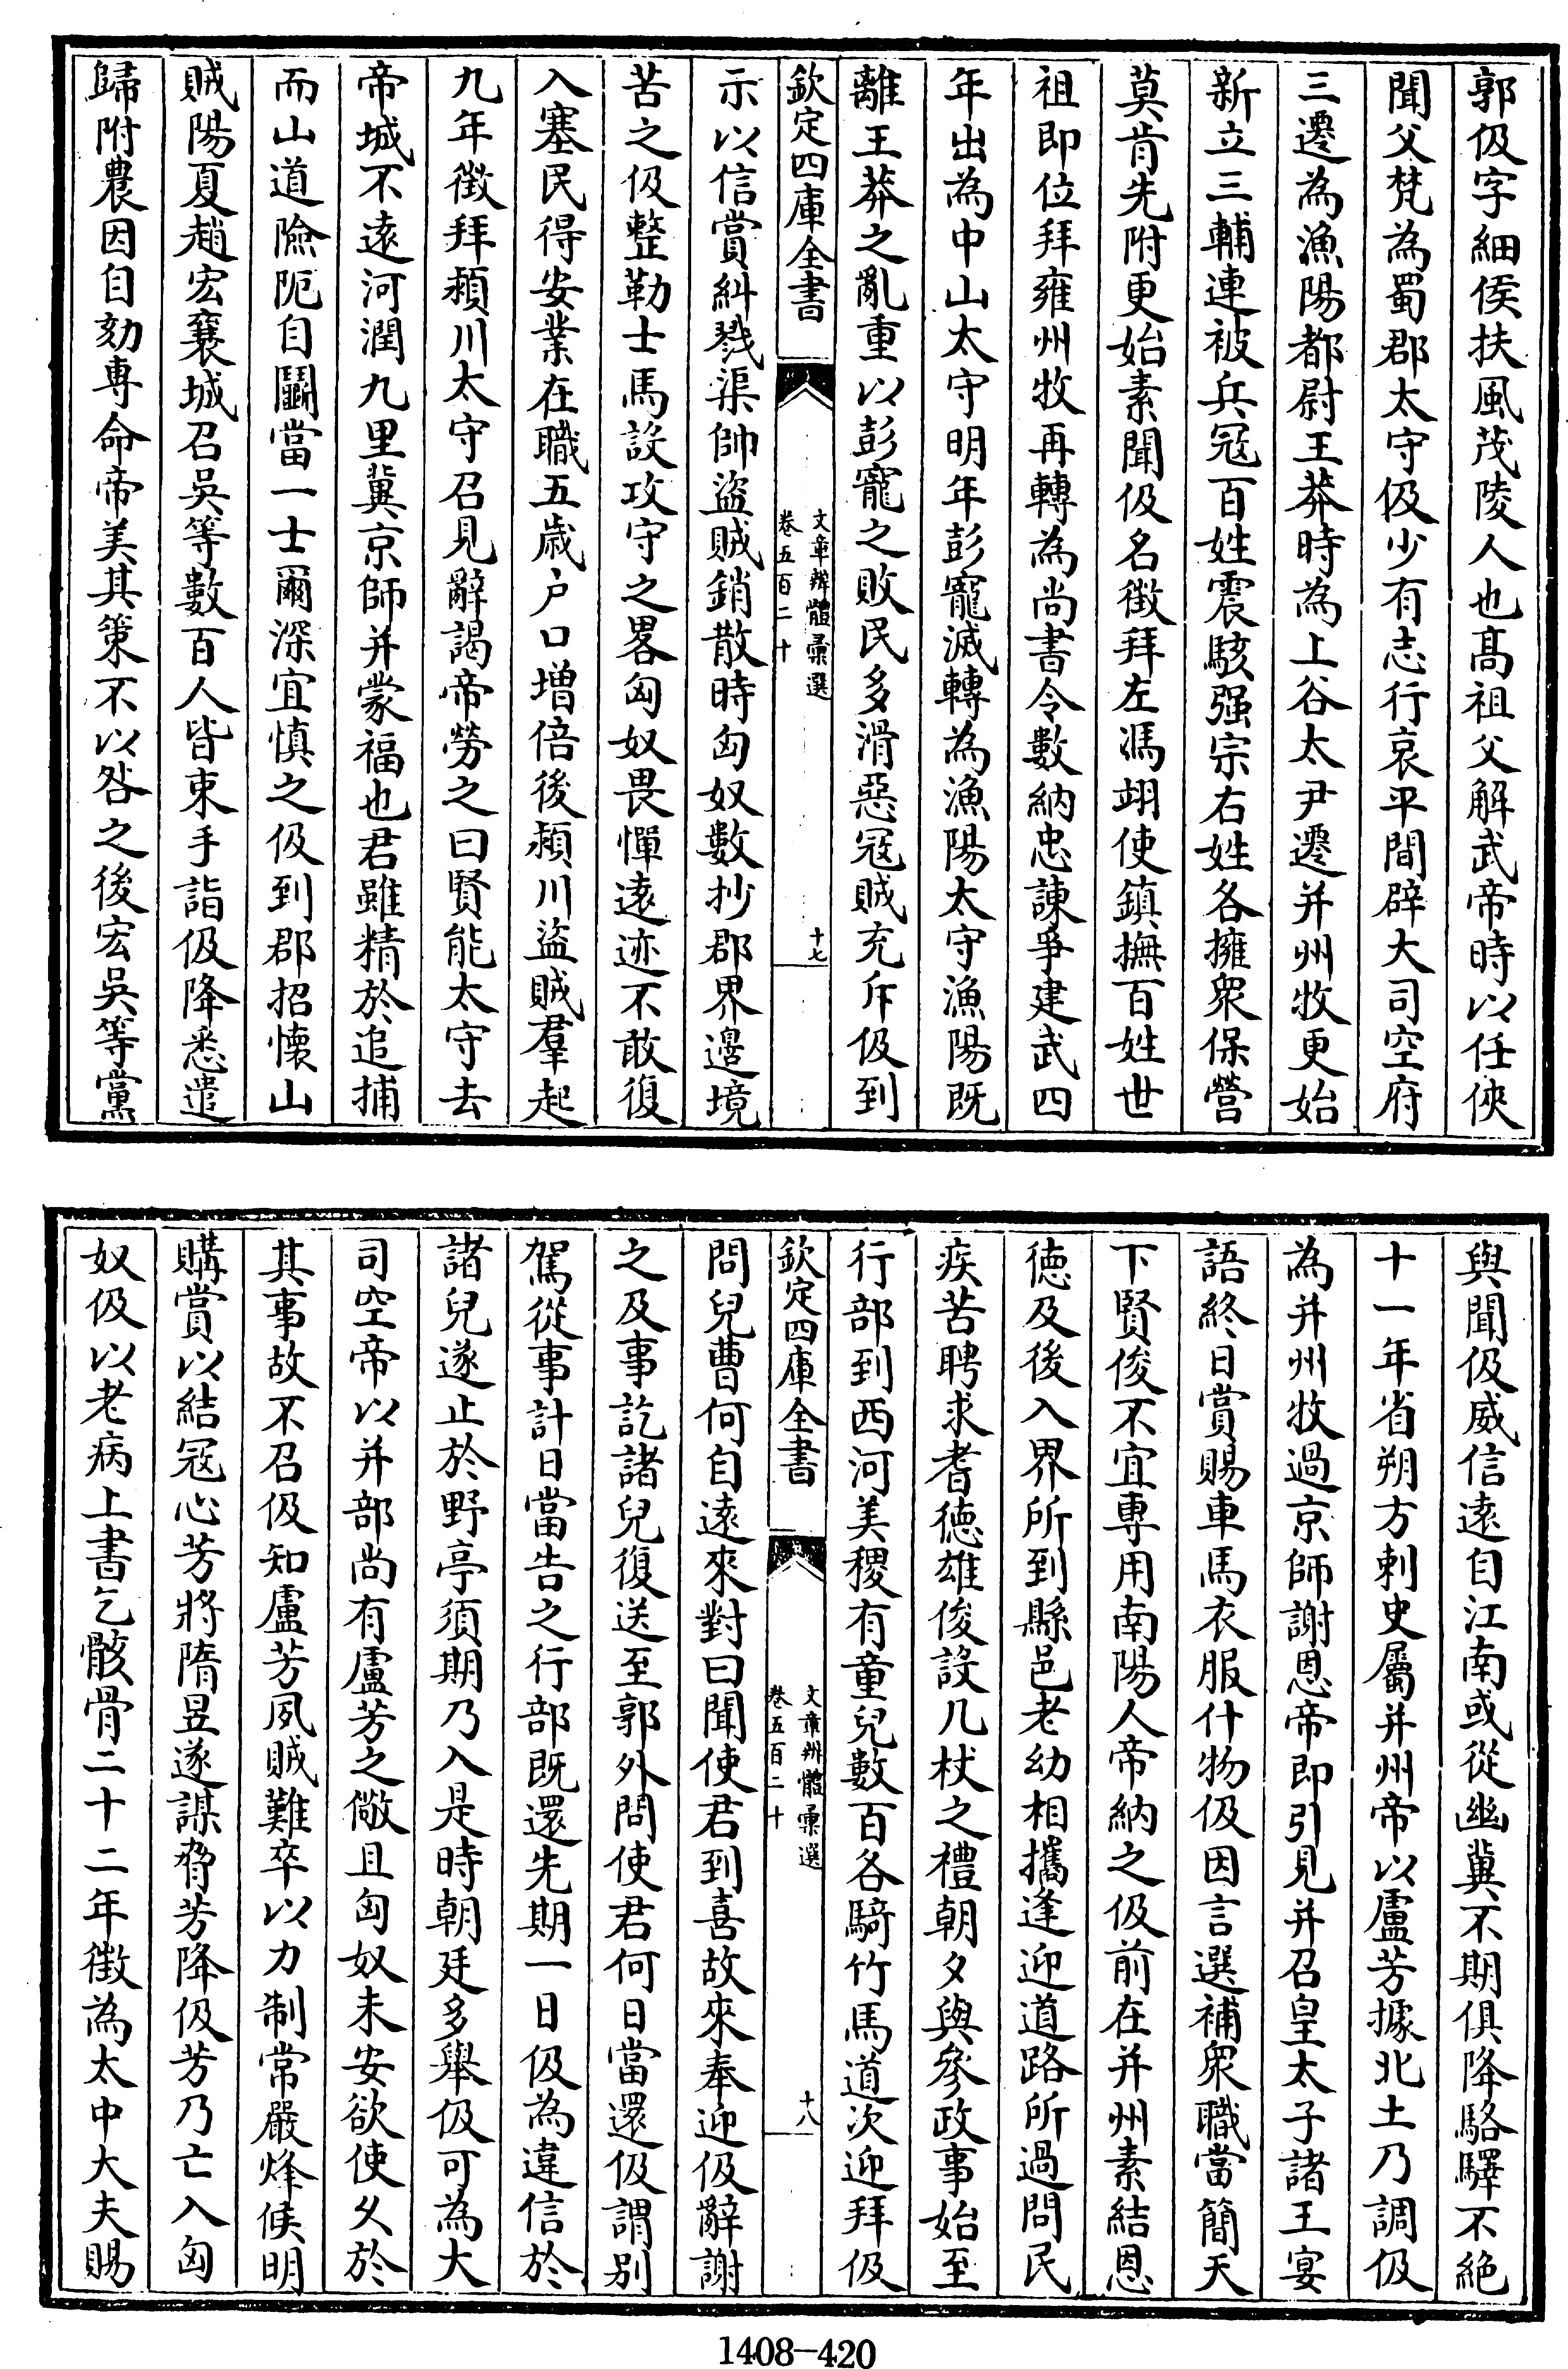 郭伋字細侯扶風茂陵人也髙祖父解武帝時以任俠
聞父梵為蜀郡太守伋少有志行哀平間辟大司空府
三遷為漁陽都尉王莽時為上谷太尹遷并州牧更始
新立三輔連被兵冦百姓震駭强宗右姓各擁衆保營
莫肯先附更始素聞伋名徵拜左馮翊使鎮撫百姓世
祖即位拜雍州牧再轉為尚書令數納忠諫爭建武四
年出為中山太守明年彭寵滅轉為漁陽太守漁陽既
離王莽之亂重以彭寵之敗民多滑惡冦賊充斥伋到
欽定四庫全書
文章辨體彚選
卷五百二十
十七
示以信賞糾戮渠帥盜賊銷散時匈奴數抄郡界邊境
苦之伋整勒士馬設攻守之畧匈奴畏憚遠迹不敢復
入塞民得安業在職五歳户口増倍後潁川盜賊羣起
九年徵拜潁川太守召見辭謁帝勞之曰賢能太守去
帝城不逺河潤九里冀京師并蒙福也君雖精於追捕
而山道險阨自鬭當一士爾深宜慎之伋到郡招懐山
賊陽夏趙宏襄城召吳等數百人皆束手詣伋降悉遣
歸附農因自劾専命帝美其策不以咎之後宏吳等黨
與聞伋威信逺自江南或從幽冀不期俱降駱驛不絶
十一年省朔方刺史屬并州帝以盧芳據北土乃調伋
為并州牧過京師謝恩帝即引見并召皇太子諸王宴
語終日賞賜車馬衣服什物伋因言選補衆職當簡天
下賢俊不宜専用南陽人帝納之伋前在并州素結恩
徳及後入界所到縣邑老幼相攜逢迎道路所過問民
疾苦聘求耆徳雄俊設几杖之禮朝夕與參政事始至
行部到西河美稷有童兒數百各騎竹馬道次迎拜伋
欽定四庫全書
文章辨體彚選
卷五百二十
十八
問兒曹何自逺來對曰聞使君到喜故來奉迎伋辭謝
之及事訖諸兒復送至郭外問使君何日當還伋謂别
駕從事計日當告之行部既還先期一日伋為違信於
諸兒遂止於野亭須期乃入是時朝廷多舉伋可為大
司空帝以并部尚有盧芳之儆且匈奴未安欲使久於
其事故不召伋知盧芳夙賊難卒以力制常嚴烽候明
購賞以結冦心芳將隋昱遂謀脅芳降伋芳乃亡入匈
奴伋以老病上書乞骸骨二十二年徵為太中大夫賜
1408-420